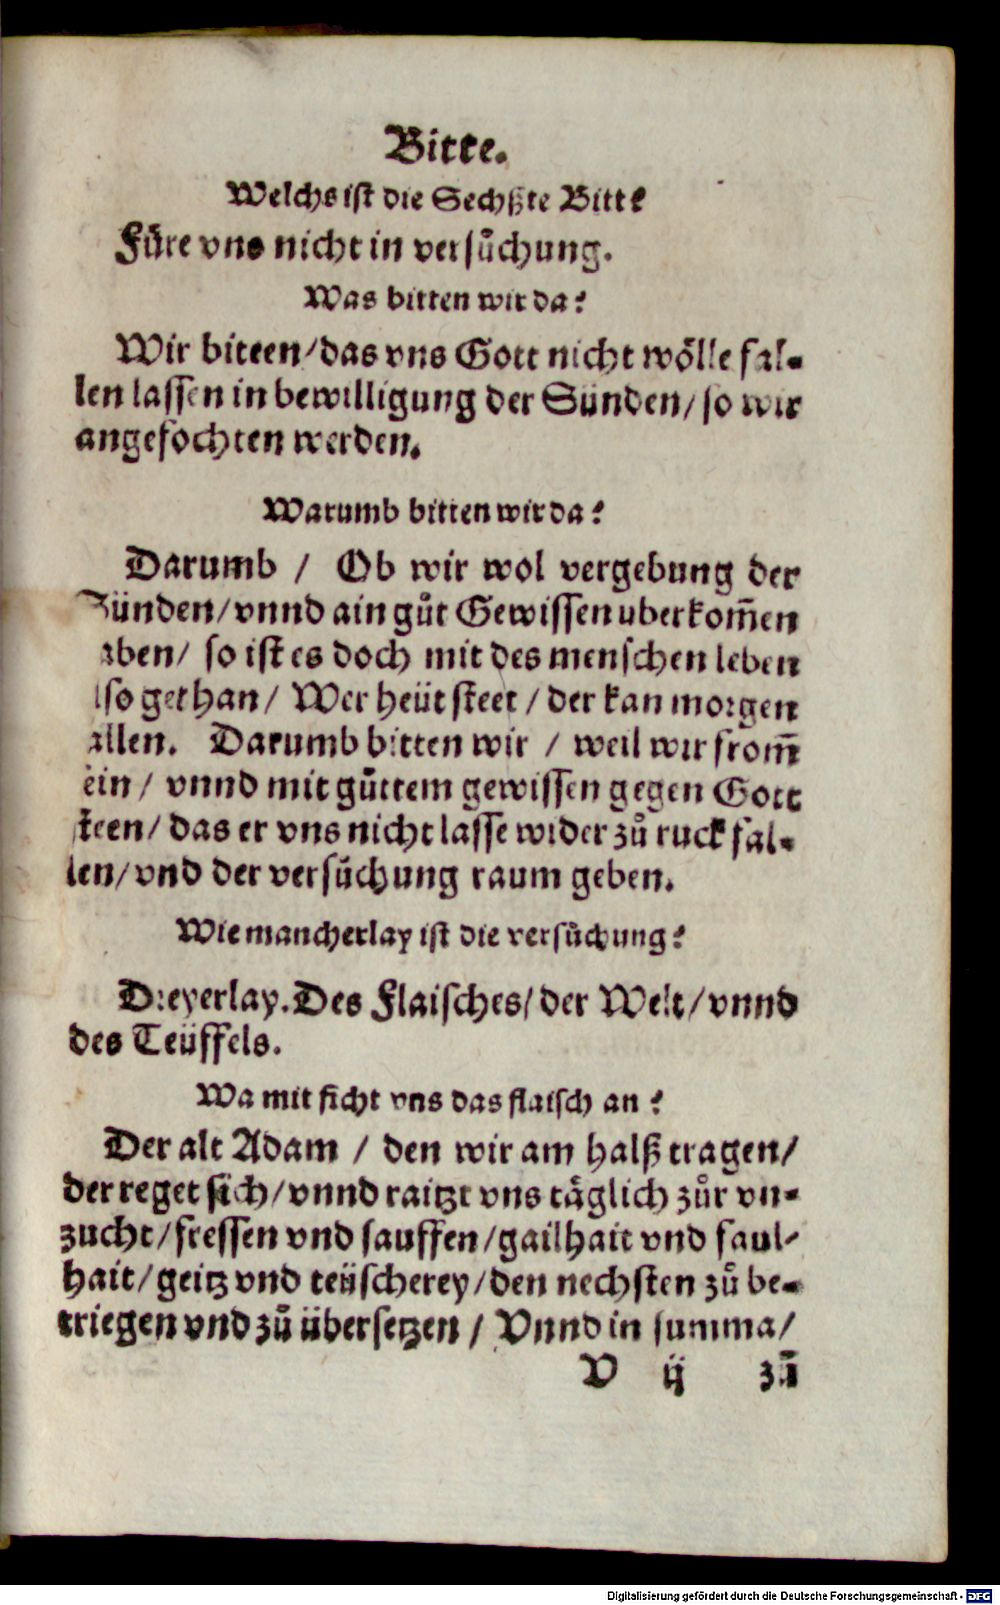 Bitte.
Welchs ist die Sechßte Bitt?
Fůre vns nicht in versůchung.
Was bitten wir da?
Wir bitten/das vns Gott nicht wölle fal-
len lassen in bewilligung der Sünden/so wir
angefochten werden.
Warumb bitten wir da?
Darumb / Ob wir wol vergebung der
Sünden/vnnd ain gůt Gewissen uberkom̃en
aben/ so ist es doch mit des menschen leben
lso gethan/ Wer heüt steet / der kan morgen
allen. Darumb bitten wir / weil wir from̃
ein / vnnd mit gůttem gewissen gegen Gott
steen/ das er vns nicht lasse wider zů ruck fal-
len/vnd der versůchung raum geben.
Wie mancherlay ist die versůchung?
Dreyerlay. Des Flaisches/der Welt/vnnd
des Teüffels.
Wa mit ficht vns das flaisch an?
Der alt Adam / den wir am halß tragen/
der reget sich/vnnd raitzt vns täglich zůr vn-
zucht/fressen vnd sauffen/gailhait vnd faul-
hait/geitz vnd teüscherey/den nechsten zů be-
triegen vnd zů übersetzen / Vnnd in summa/
V ij zů
Digitalisierung gefördert durch die Deutsche Forschungsgemeinschaft - DFG